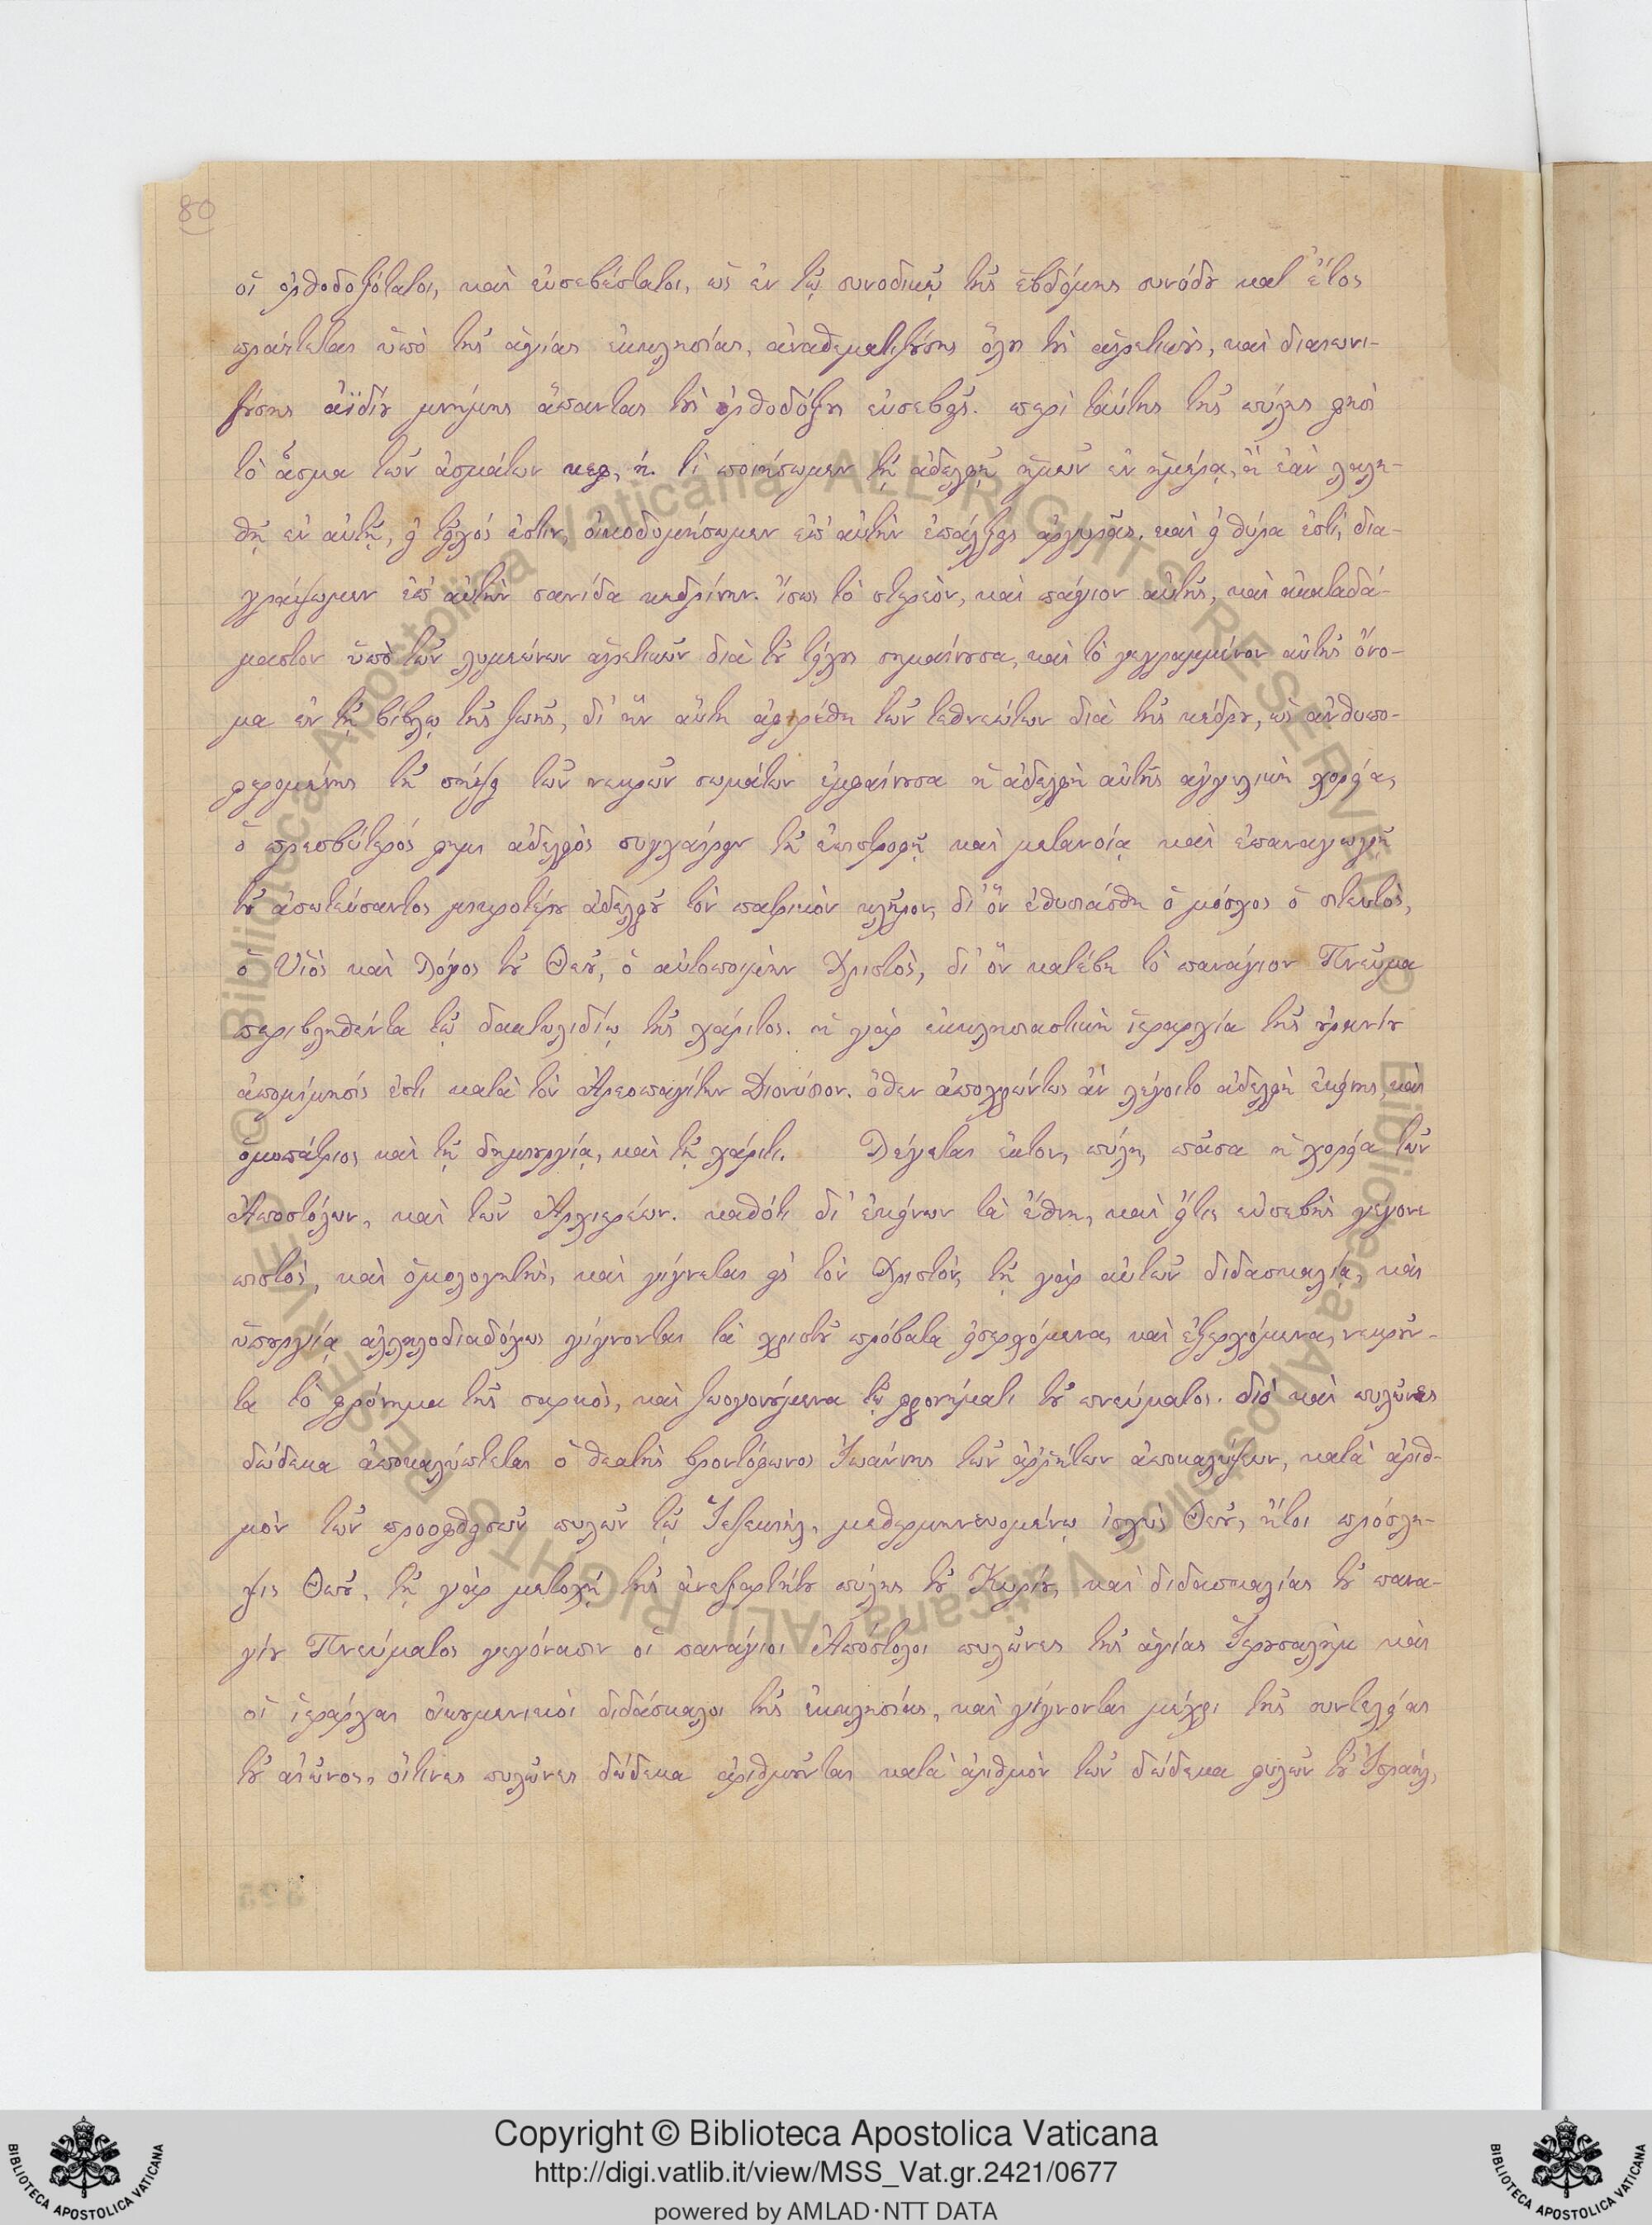 80
οἱ ὀρθοδοξότατοι, καὶ εὐσεβέστατοι, ὡς ἐν τῷ συνοδικῷ τῆς ἑβδόμης συνόδȣ κατ' ἔτος
πράττεται ὑπὸ τῆς ἁγίας ἐκκλησίας, ἀναθεματιζȣ́σης ὅλȣς τȣ̀ς αἱρετικȣ̀ς, καὶ διαιωνι-
ζȣ́σης ἀϊδίȣ μνήμης ἅπαντας τȣ̀ς ὀρθοδόξȣς εὐσεβεῖς. περὶ ταύτης τῆς πύλης φησὶ
τὸ ᾆσμα τῶν ἀσμάτων κεφ, ή. τὶ ποιήσωμεν τῇ ἀδελφῇ ἡμῶν ἐν ἡμέρᾳ, ᾗ ἐὰν λαλη-
θῇ ἐν αὐτῇ, εἰ τεῖχός ἐστιν, οἰκοδομήσωμεν ἐπ' αὐτὴν ἐπάλξεις ἀργυρᾶς. καὶ εἰ θύρα ἐστὶ, δια-
γράψωμεν ἐπ' αὐτὴν σανίδα κεδρίνην. ἴσως τὸ στερεὸν, καὶ πάγιον αὐτῆς, καὶ ἀκαταδά-
μαστον ὑπὸ τῶν λυμεώνων αἱρετικῶν διὰ τȣ͂ τείχȣς σημαίνȣσα, καὶ τὸ γεγραμμένον αὐτῆς ὄνο-
μα ἐν τῇ βίβλῳ τῆς ζωῆς, δι' ἣν αὕτη ἀφῃρέθη τῶν τεθνεώτων διὰ τῆς κέδρȣ, ὡς ἀνθυπο-
φερομένης τῇ σήψει τῶν νεκρῶν σωμάτων ἐμφαίνȣσα ἡ ἀδελφὴ αὐτῆς ἀγγελικὴ χορεία,
ὁ πρεσβύτερός φημι ἀδελφὸς συγχαίρειν τῇ ἐπιστροφῇ καὶ μετανοίᾳ καὶ ἐπαναγωγῇ
τȣ͂ ἀσωτεύσαντος μικροτέρȣ ἀδελφȣ͂ τὸν πατρικὸν κλῆρον, δι' ὃν ἐθυσιάσθη ὁ μόσχος ὁ σιτευτὸς,
ὁ Υἱὸς καὶ Λόγος τȣ͂ Θεȣ͂, ὁ αὐτοποιμὴν Χριστὸς, δι' ὃν κατέβη τὸ πανάγιον Πνεῦμα
περιβληθέντα τῷ δακτυλιδίῳ τῆς χάριτος. ἡ γὰρ ἐκκλησιαστικὴ ἱεραρχία τῆς ȣ̓ρανίȣ
ἀπομίμησίς ἐστι κατὰ τὸν Ἀρεοπαγίτην Διονύσιον. ὅθεν ἀποχρώντως ἂν λέγοιτο ἀδελφὴ ἐκείνης, καὶ
ὁμοπάτριος καὶ τῇ δημιȣργίᾳ, καὶ τῇ χάριτι. Λέγεται ἕκτον, πύλη, πᾶσα ἡ χορεία τῶν
Ἀποστόλων, καὶ τῶν Ἀρχιερέων. καθότι δι' ἐκείνων τὰ ἔθνη, καὶ εἴτις εὐσεβὴς γέγονε
πιστὸς, καὶ ὁμολογητὴς, καὶ γίγνεται εἰς τὸν Χριστὸν, τῇ γὰρ αὐτῶν διδασκαλίᾳ, καὶ
ὑπȣργίᾳ ἀλληλοδιαδόχως γίγνονται τὰ χριστȣ͂ πρόβατα εἰσερχόμενα, καὶ ἐξερχόμενα, νεκρȣ͂ν-
τα τὸ φρόνημα τῆς σαρκὸς, καὶ ζωογονȣ́μενα τῷ φρονήματι τȣ͂ πνεύματος. διὸ καὶ πυλῶνες
δώδεκα ἀποκαλύπτεται ὁ θεατὴς βροντόφωνος Ἰωάννης τῶν ἀῤῥήτων ἀποκαλύψεων, κατὰ ἀριθ-
μὸν τῶν προοφθεισῶν πυλῶν τῷ Ἰεζεκιὴλ, μεθερμηνευομένῳ ἰσχὺς Θεȣ͂, ἤτοι πρόσλη-
ψις Θεȣ͂, τῇ γὰρ μετοχῇ τῆς ἀνεξαρτήτȣ πύλης τȣ͂ Κυρίȣ, καὶ διδασκαλίας τȣ͂ πανα-
γίȣ Πνεύματος γεγόνασιν οἱ πανάγιοι Ἀπόστολοι πυλῶνες τῆς ἁγίας Ἱερȣσαλὴμ καὶ
οἱ ἱεράρχαι οἰκȣμενικοὶ διδάσκαλοι τῆς ἐκκλησίας, καὶ γίγνονται μέχρι τῆς συντελείας
τȣ͂ αἰῶνος, οἵτινες πυλῶνες δώδεκα ἀριθμȣ͂νται κατὰ ἀριθμὸν τῶν δώδεκα φυλῶν τȣ͂ Ἰσραὴλ,
Copyright © Biblioteca Apostolica Vaticana
http://digi.vatlib.it/view/MSS_Vat.gr.2421/0677
powered by AMLAD·NTT DATA